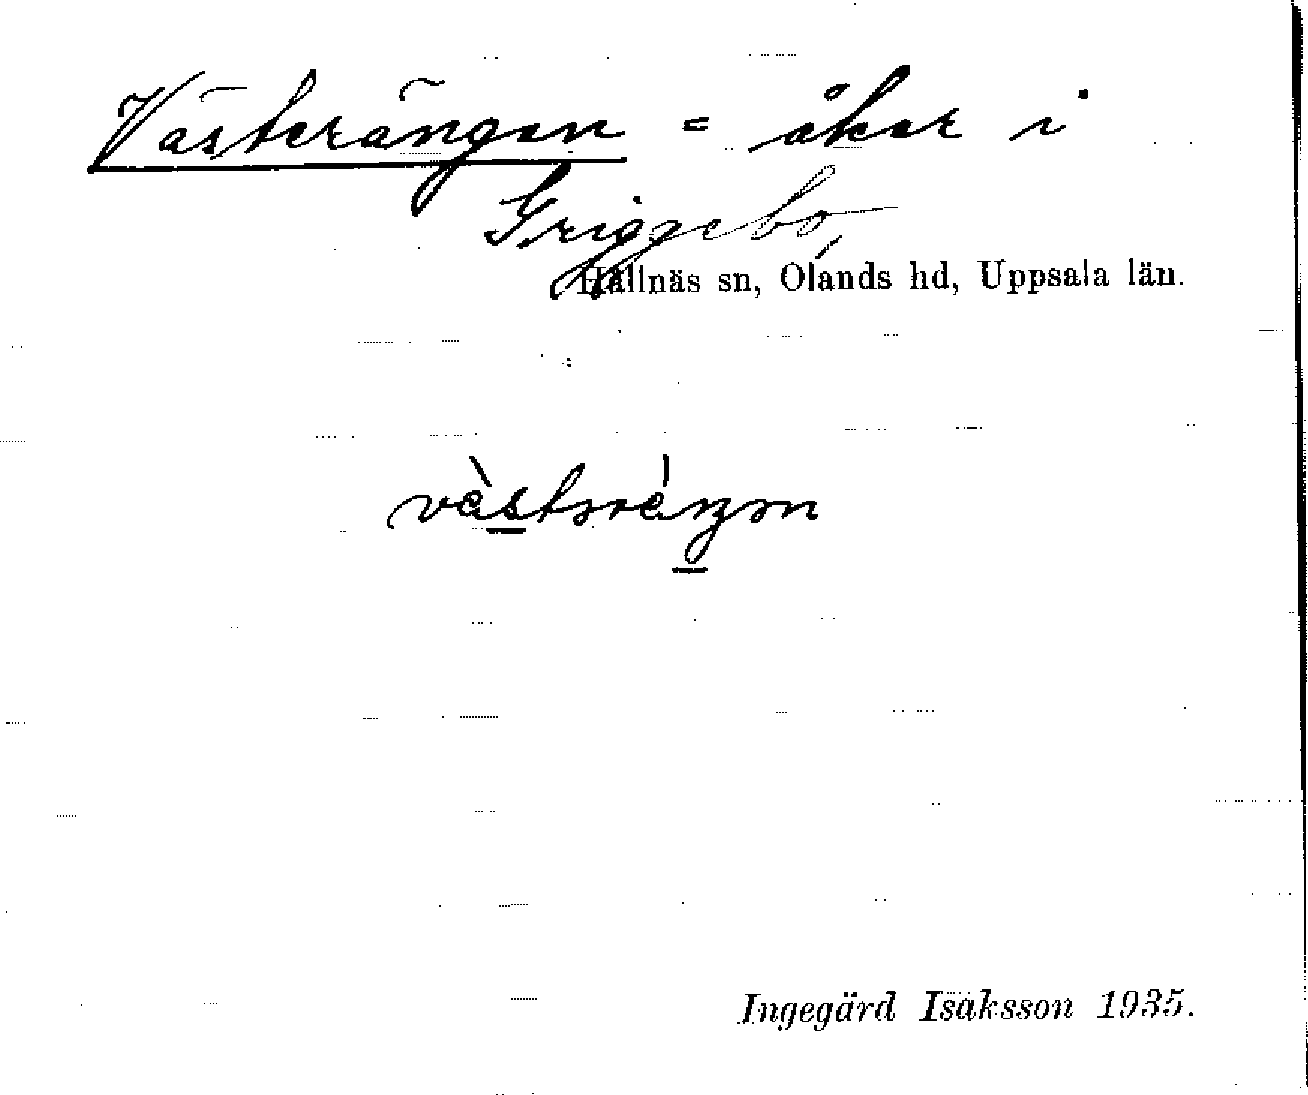 Västerängen = åker i
Griggebo,
Hållnäs sn, Olands hd, Uppsala län.
Ingegärd Isaksson 1935.